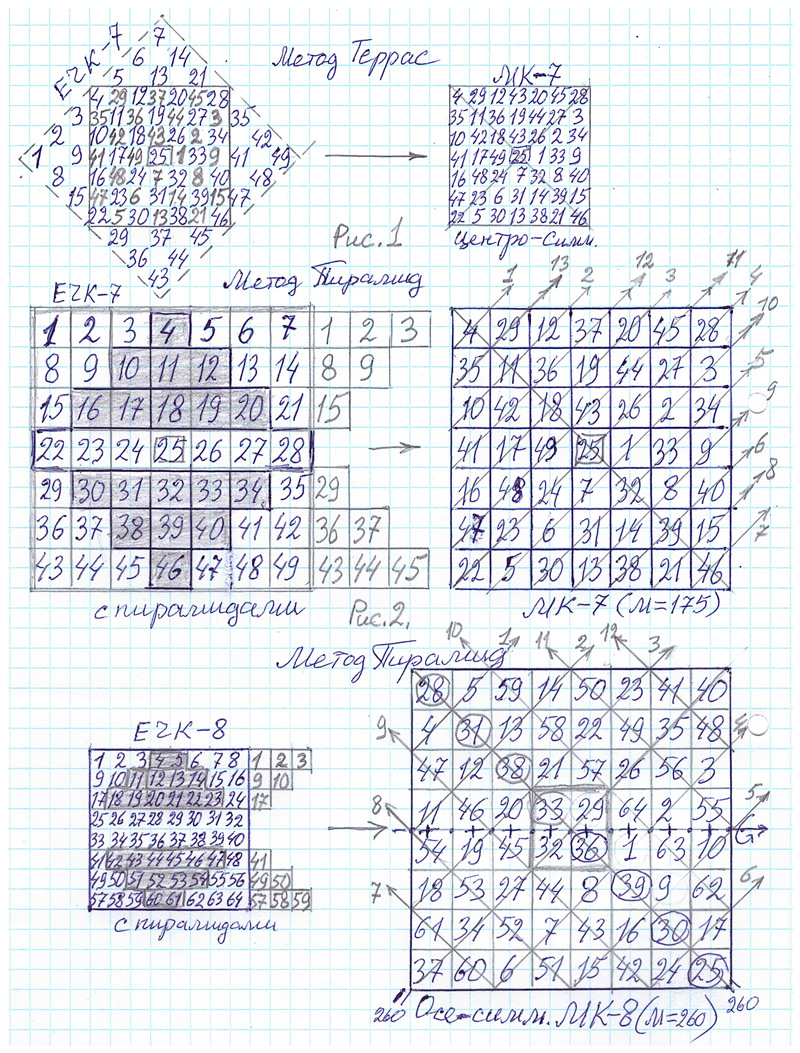 Метод Террас
ЕЧК-7
7
6 14
5 13 21
4 29 12 37 20 45 28
3 35 11 36 19 44 27 3 35
2 10 42 18 43 26 2 34 42
1 9 41 17 49 25 1 33 9 41 49
8 16 48 24 7 32 8 40 48
15 47 23 6 31 14 39 15 47
22 5 30 13 38 21 46
29 37 45
36 44
43
Рис.1
МК-7
4 29 12 43 20 45 28
35 11 36 19 44 27 3
10 42 18 43 26 2 34
41 17 49 25 1 33 9
16 48 24 7 32 8 40
47 23 6 31 14 39 15
22 5 30 13 38 21 46
Центро-Симм.
Метод Пирамид
ЕЧК-7
1 2 3 4 5 6 7 1 2 3
8 9 10 11 12 13 14 8 9
15 16 17 18 19 20 21 15
22 23 24 25 26 27 28
29 30 31 32 33 34 35 29
36 37 38 39 40 41 42 36 37
43 44 45 46 47 48 49 43 44 45
с пирамидами
Рис.2.
1 13 2 12 3 11 4
4 29 12 37 20 45 28 10
35 11 36 19 44 27 3 5
10 42 18 43 26 2 34 9
41 17 49 25 1 33 9 6
16 48 24 7 32 8 40 8
47 23 6 31 14 39 15 7
22 5 30 13 38 21 46
МК-7 (М=175)
Метод Пирамид
ЕЧК-8
1 2 3 4 5 6 7 8 1 2 3
9 10 11 12 13 14 15 16 9 10
17 18 19 20 21 22 23 24 17
25 26 27 28 29 30 31 32
33 34 35 36 37 38 39 40
41 42 43 44 45 46 47 48 41
49 50 51 52 53 54 55 56 49 50
57 58 59 60 61 62 63 64 57 58 59
с пирамидами
10 1 11 2 12 3
28 5 59 14 50 23 41 40
9 4 31 13 58 22 49 35 48 4
47 12 38 21 57 26 56 3
8 11 46 20 33 29 64 2 55 5
G
54 19 45 32 36 1 63 10
7 18 53 27 44 8 39 9 62 6
61 34 52 7 43 16 30 17
37 60 6 51 15 42 24 25
260 Осе-симм. МК-8 (М=260) 260